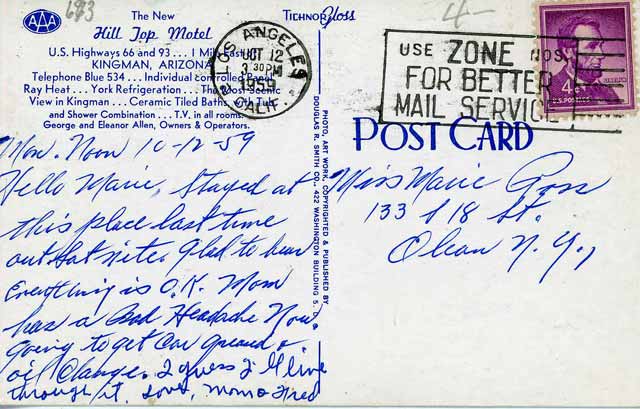 683
AAA
The New
Hill Top Motel
U.S. Highways 66 and 93 . . . 1 Mile East
KINGMAN, ARIZONA
Telephone Blue 534 . . . Individual controlled Panel
Ray Heat . . . York Refrigeration . . . The Most Scenic
View in Kingman . . . Ceramic Tiled Baths with Tub
and Shower Combination . . . T.V. in all rooms.
George and Eleanor Allen, Owners & Operators.
TICHNOR Gloss
4-
LOS ANGELES
OCT 12
3 30 PM
1959
CALIF.
USE ZONE NOS.
FOR BETTER
MAIL SERVICE
4¢
U.S. POSTAGE
PHOTO, ART WORK, COPYRIGHTED & PUBLISHED BY
DOUGLAS R. SMITH CO., 422 WASHINGTON BUILDING
POST CARD
Mon. Noon 10-12-59
Hello Marie, Stayed at
this place last time
out. Sat nite. Glad to hear
Everything is O.K. Mom
has a Bad Headache Now.
Going to get Car greased &
oil Change. I guess I'll live
through it. Love, Mom & Fred
Miss Marie Ross
133 S 18 St.
Olean N.Y.,